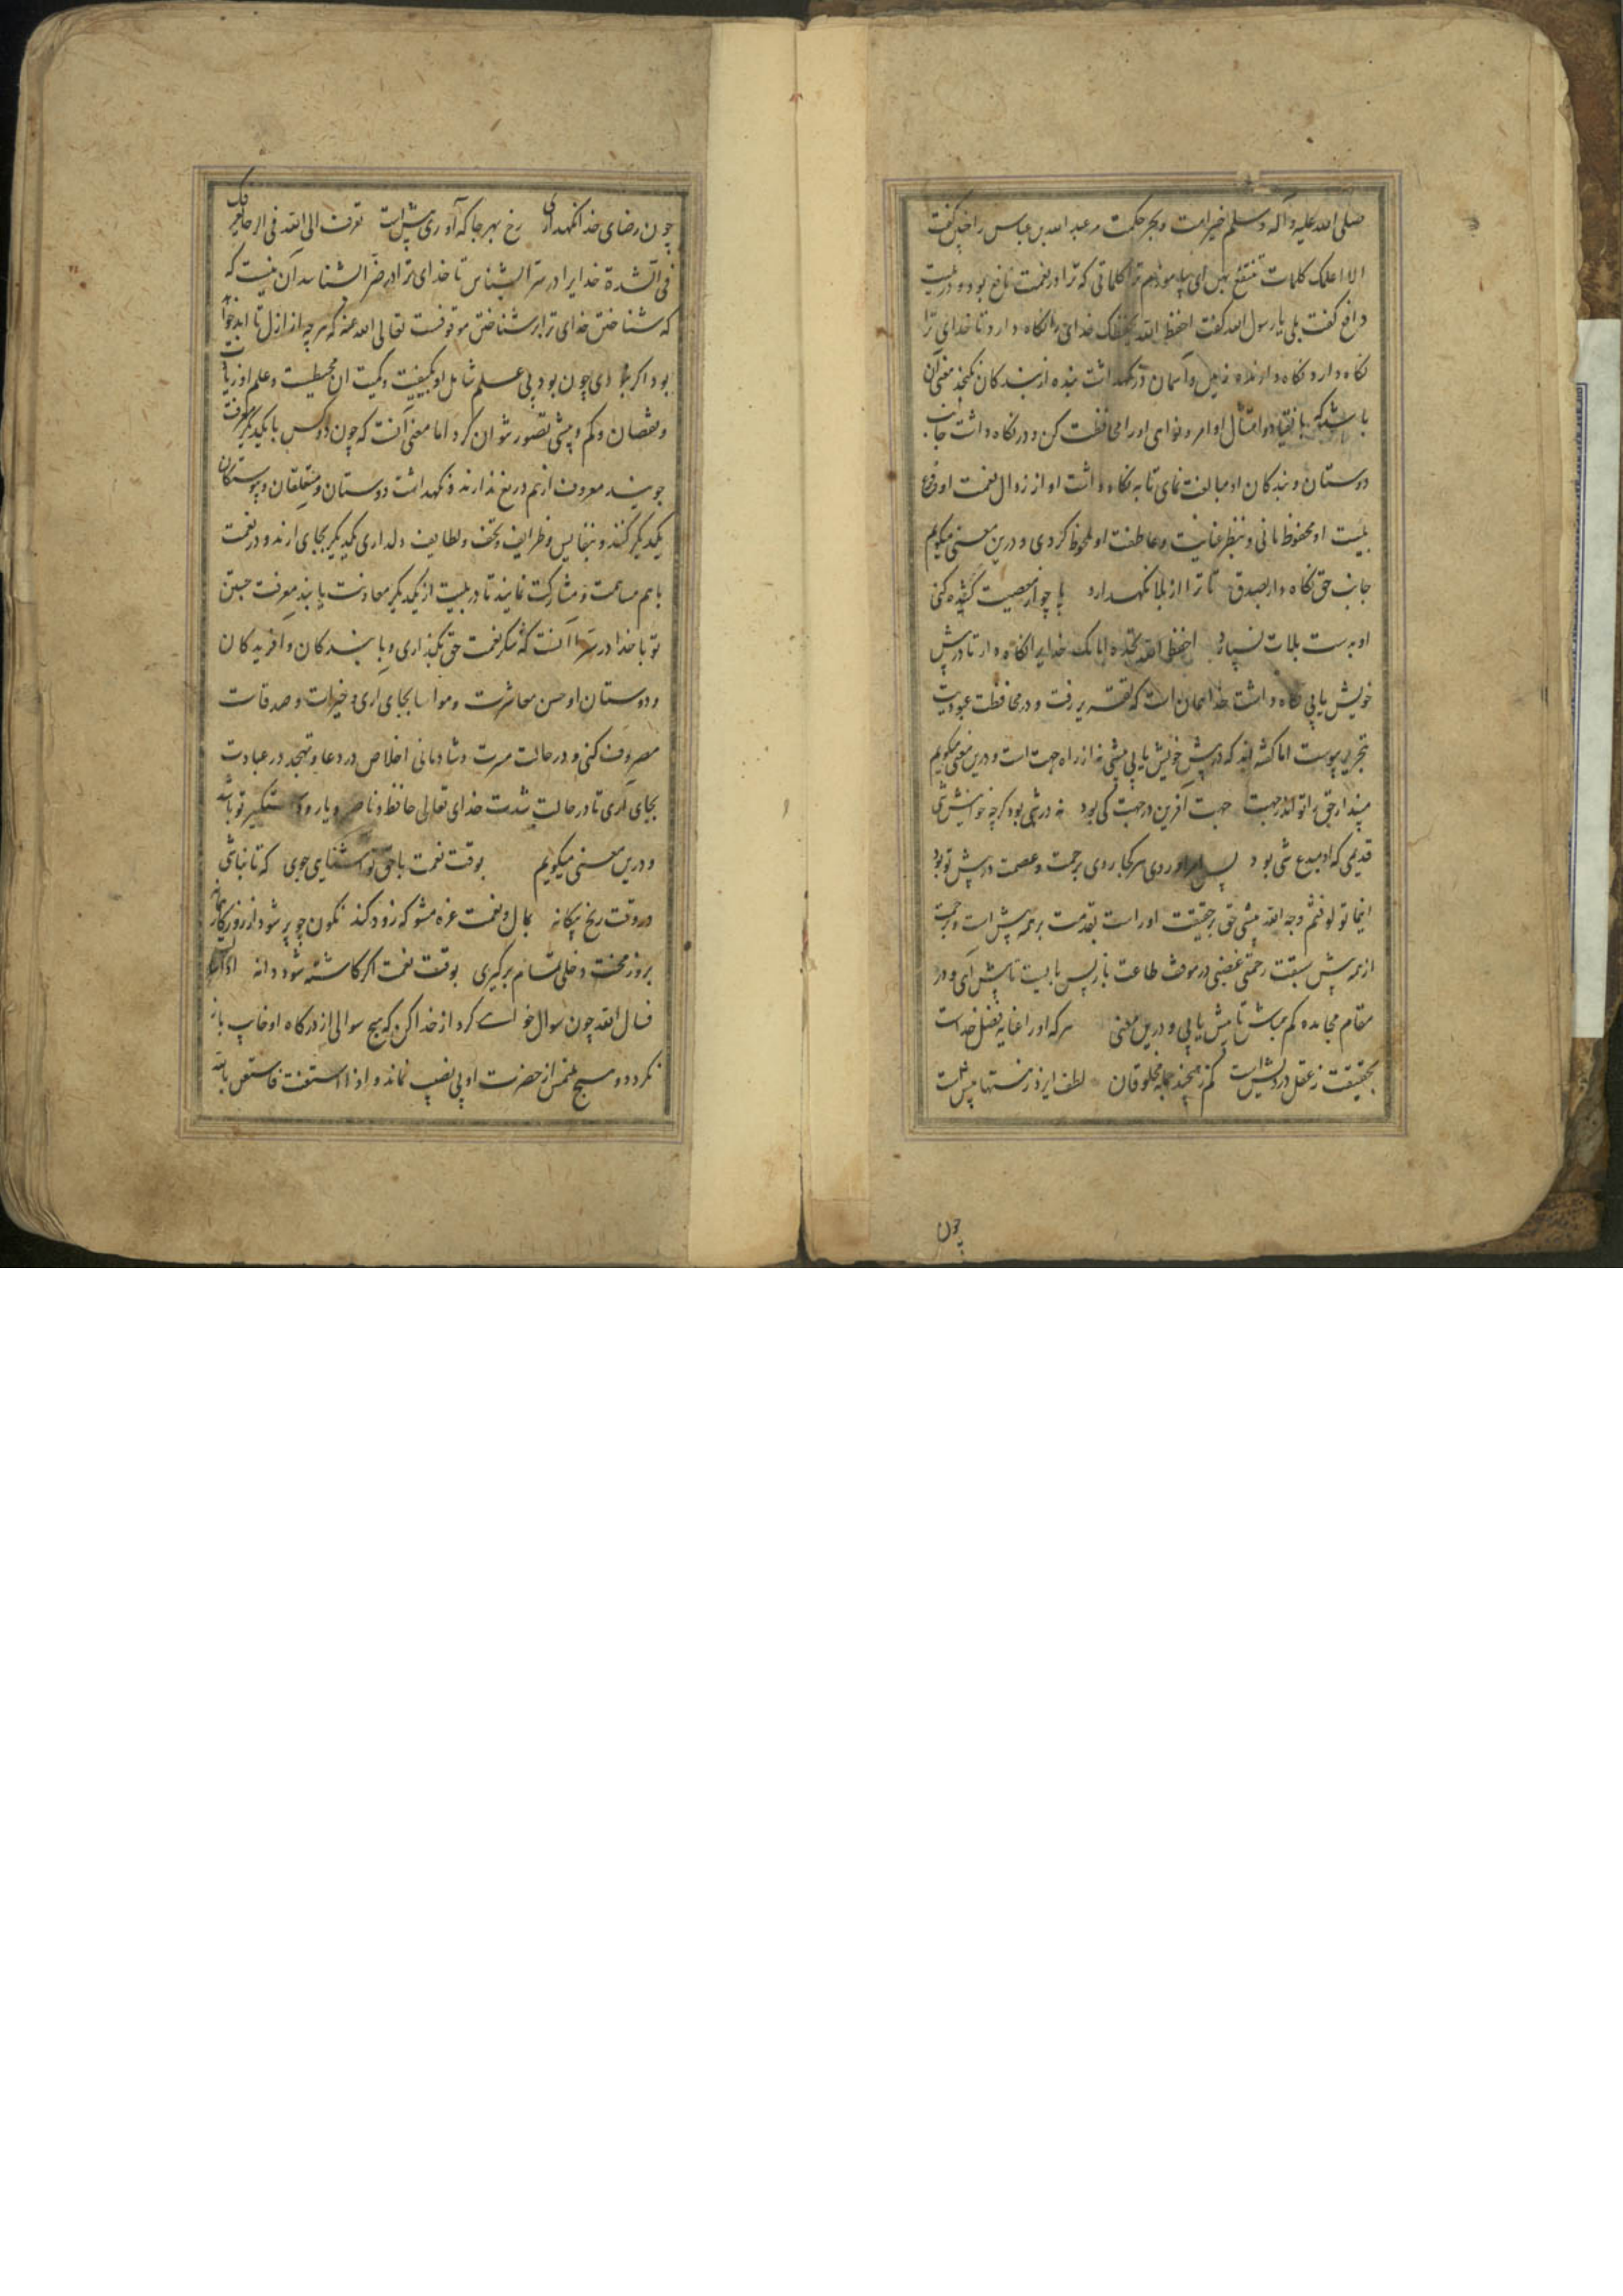 صلی الله علیه و آله و سلم خیر امت و بحر حکمت مر عبد الله بن عباس را چنین گفت
الا اعلمک کلمات تنتفع بهن ای بیاموزم ترا کلماتی که ترا در نعمت نافع بود و در بلیت
دافع گفت بلی یا رسول الله گفت احفظ الله یحفظک خدای را نگاه دار و تا خدای ترا
نگاه دارد نگاه دارنده زمین و آسمان در نگهداشت بنده از بندگان نگنجد معنی آن
باشد که بانقیاد و امتثال اوامر و نواهی او را محافظت کن و در نگاه داشت جانب
دوستان و بندکان او مبالغت نمای تا به نگاه داشت او از زوال نعمت او وقوع
بلیت او محفوظ مانی و بنظر عنایت و عاطفت او ملحوظ کردی و درین معنی میکویم
جانب حق نگاه دار بصدق تا ترا از بلا نگهدارد پا چو از معصیت کشیده کنی
او بدست بلات نسپارد احفظ الله تجده امامک خدایرا نگاه دار تا در پیش
خویش یابی نگاه داشت خدا همان است که تقریر رفت و در محافظت عبودیت
تحریر پیوست اما کفته اند که در پیش خویش یابی پیشی نه از راه جهت است و درین معنی میکویم
مپندار حق را تو اندر جهت جهت آفرین در جهت کی بود نه در شی بود کرچه خوانیش شی
قدیمی که او مبدع شی بود پس روی هر کجا روی برحمت و عصمت در پیش تو بود
اینما تولوا فثم وجه الله پیشی حق بر حقیقت او راست بقدمت بر همه پیش است و برحمت
از همه پیش سبقت رحمتی غضبی در موقف طاعت باز پس مایست تا پیش آی و در
مقام مجاهده کم مباش تا بیش یابی و درین معنی هر که او را عنایه فضل خداست
بحقیقت ز عقل در پیش است کم نسنجد جمله مخلوقان لطف ایزد ز منتها بیش است
چون
چون رضای خدا نگهداری رخ بهر جا که آوری پیش است تعرف الی الله فی الرخاء یعرفک
فی الشدة خدایرا در سرا بشناس تا خدای ترا در ضرا بشناسد آن نیست که
که شناختن خدای ترا بر شناختن موقوفست تعالی الله عنه که هر چه از ازل تا ابد خواهد
بود اکر بود ای چون بود پی علم شامل او بکیفیت و کمیت ان محیطست و علم او زیادت
و نقصان و کم و بیشی تصور نتوان کرد اما معنی آنست که چون دو کس با یکدیگر معرفت
جویند معروف از هم دریغ ندارند و نگهداشت دوستان و متعلقان و پیوستکان
یکدیکر کنند و بنفایس و ظرایف و تحف و لطایف دلداری یکدیکر بجای ارند و در نعمت
با هم مساهمت و مشارکت نمایند تا در بلیت از یکدیکر معاونت یابند معرفت جستن
تو با خدا در سرا آنست که شکر نعمت حق بکذاری و با بندکان و افریدکان
و دوستان او حسن معاشرت و مواسا بجای اری و خیرات و صدقات
مصروف کنی و در حالت مسرت و شادمانی اخلاص در دعا و تهجد در عبادت
بجای آری تا در حالت شدت خدای تعالی حافظ و ناصر و یار و دستکیر تو باشد
و درین معنی میکویم بوقت نعمت با حق تو آشنایی جوی که تا نباشی
در وقت رنج بیکانه بمال و نعمت غره مشو که زود کند نکون چو پر شود از روزکار پیمانه
بروز محنت دخلی تمام برکیری بوقت نعمت اکر کاشته شود دانه اذا سالت
فسال الله چون سوال خواهی کرد از خدا کن که هیچ سوالی از درکاه او خایب باز
نکردد و هیچ ملتمس از حضرت او بی نصیب نماند و اذا استعنت فاستعن بالله